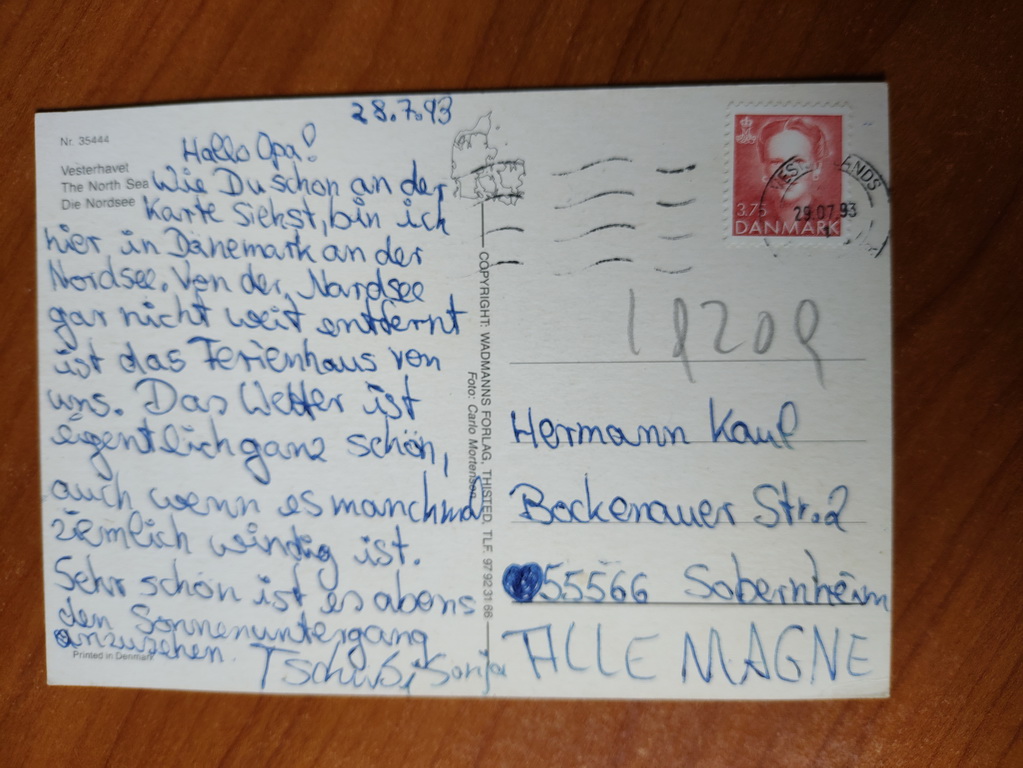 28.7.93
Nr. 35444
Vesterhavet
The North Sea
Die Nordsee
Hallo Opa!
Wie Du schon an der
Karte siehst, bin ich
hier in Dänemark an der
Nordsee. Von der Nordsee
gar nicht weit entfernt
ist das Ferienhaus von
uns. Das Wetter ist
eigentlich ganz schön,
auch wenn es manchmal
ziemlich windig ist.
Sehr schön ist es abens
den Sonnenuntergang
anzusehen.
Printed in Denmark
Tschüß, Sonja
COPYRIGHT: WADMANNS FORLAG, THISTED. TLF. 97 92 31 66
Foto: Carlo Mortensen
3.75
DANMARK
29.07.93
Hermann Kauf
Bockenauer Str. 2
55566 Sobernheim
ALLE MAGNE